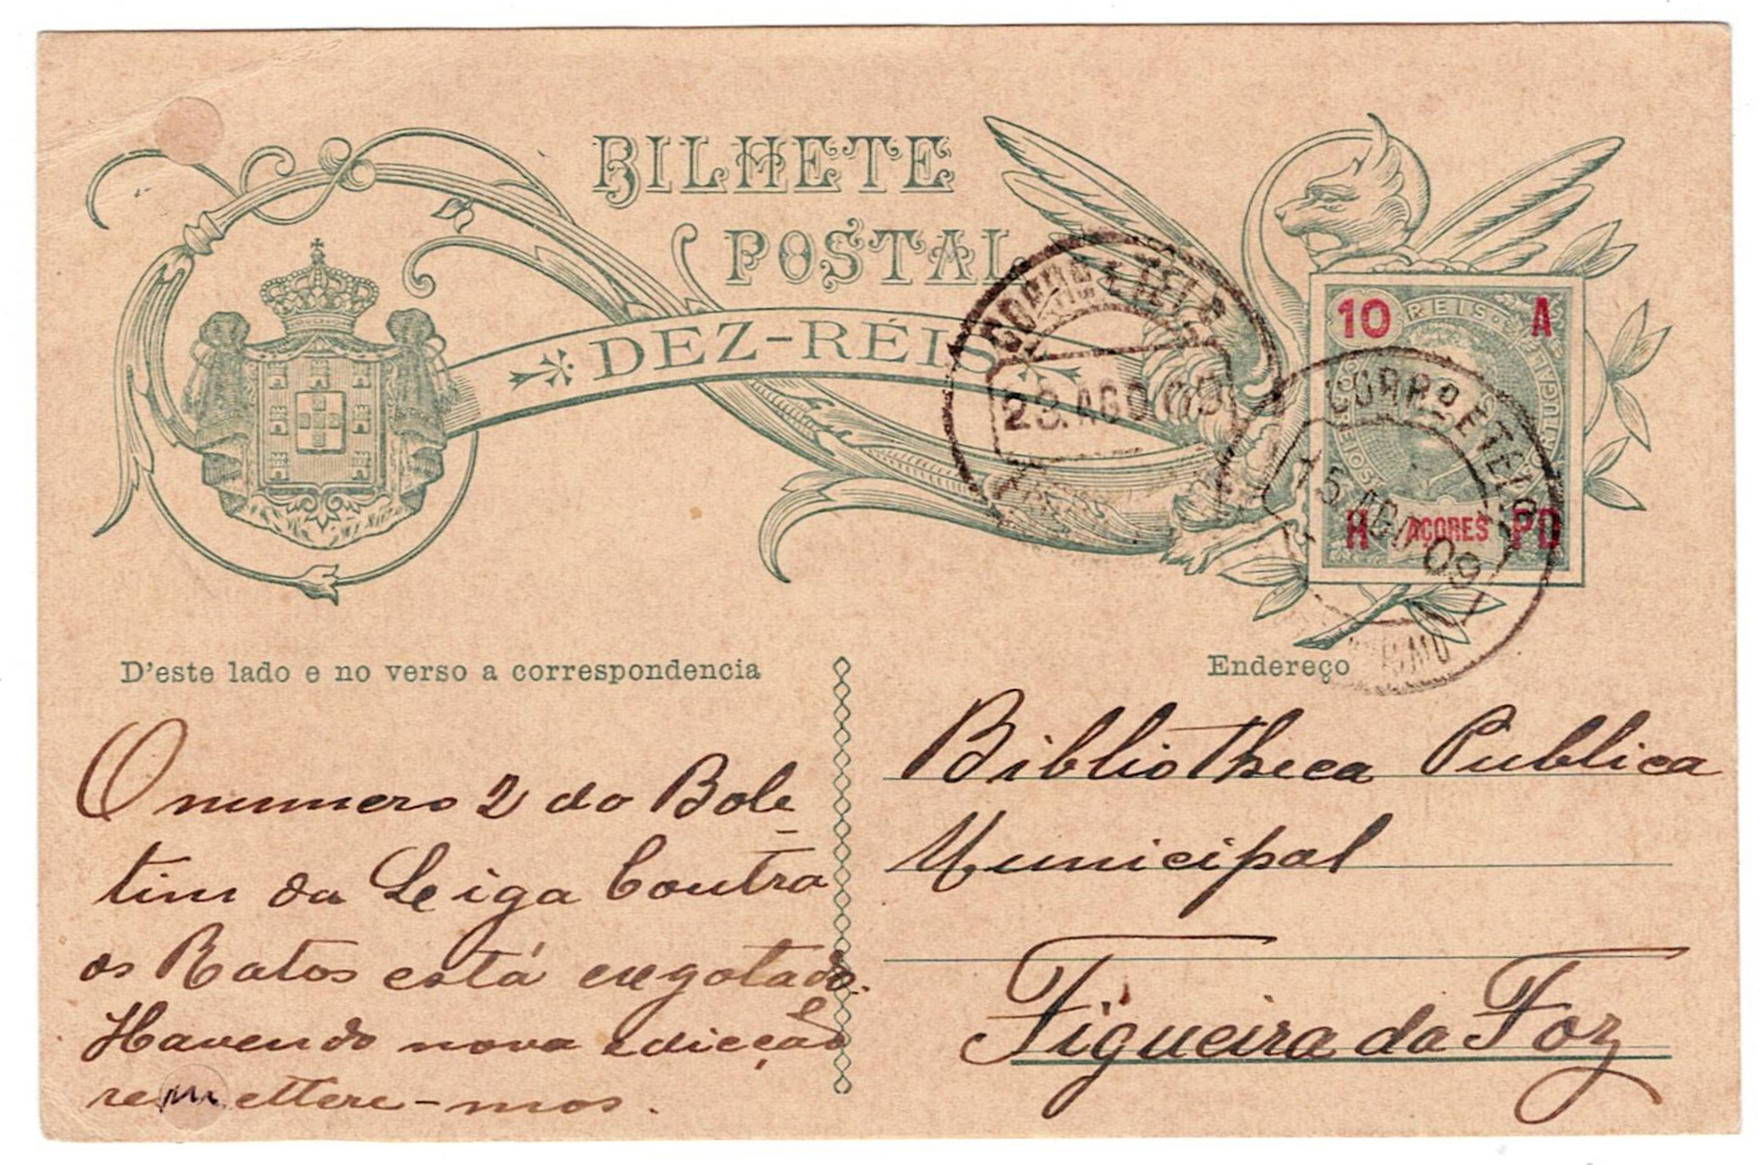 BILHETE
POSTAL
DEZ-RÉIS
CORRO E TELO
23. AGO 09
10 REIS A
CORRO E TELO
15 AGO 09
H AÇORES PD
D'este lado e no verso a correspondencia
Endereço
O numero 2 do Bole
tim da Leiga Contra
os Ratos está exgotado.
Havendo nova edicção
remettere-mos.
Bibliotheca Publica
Municipal
Figueira da Foz